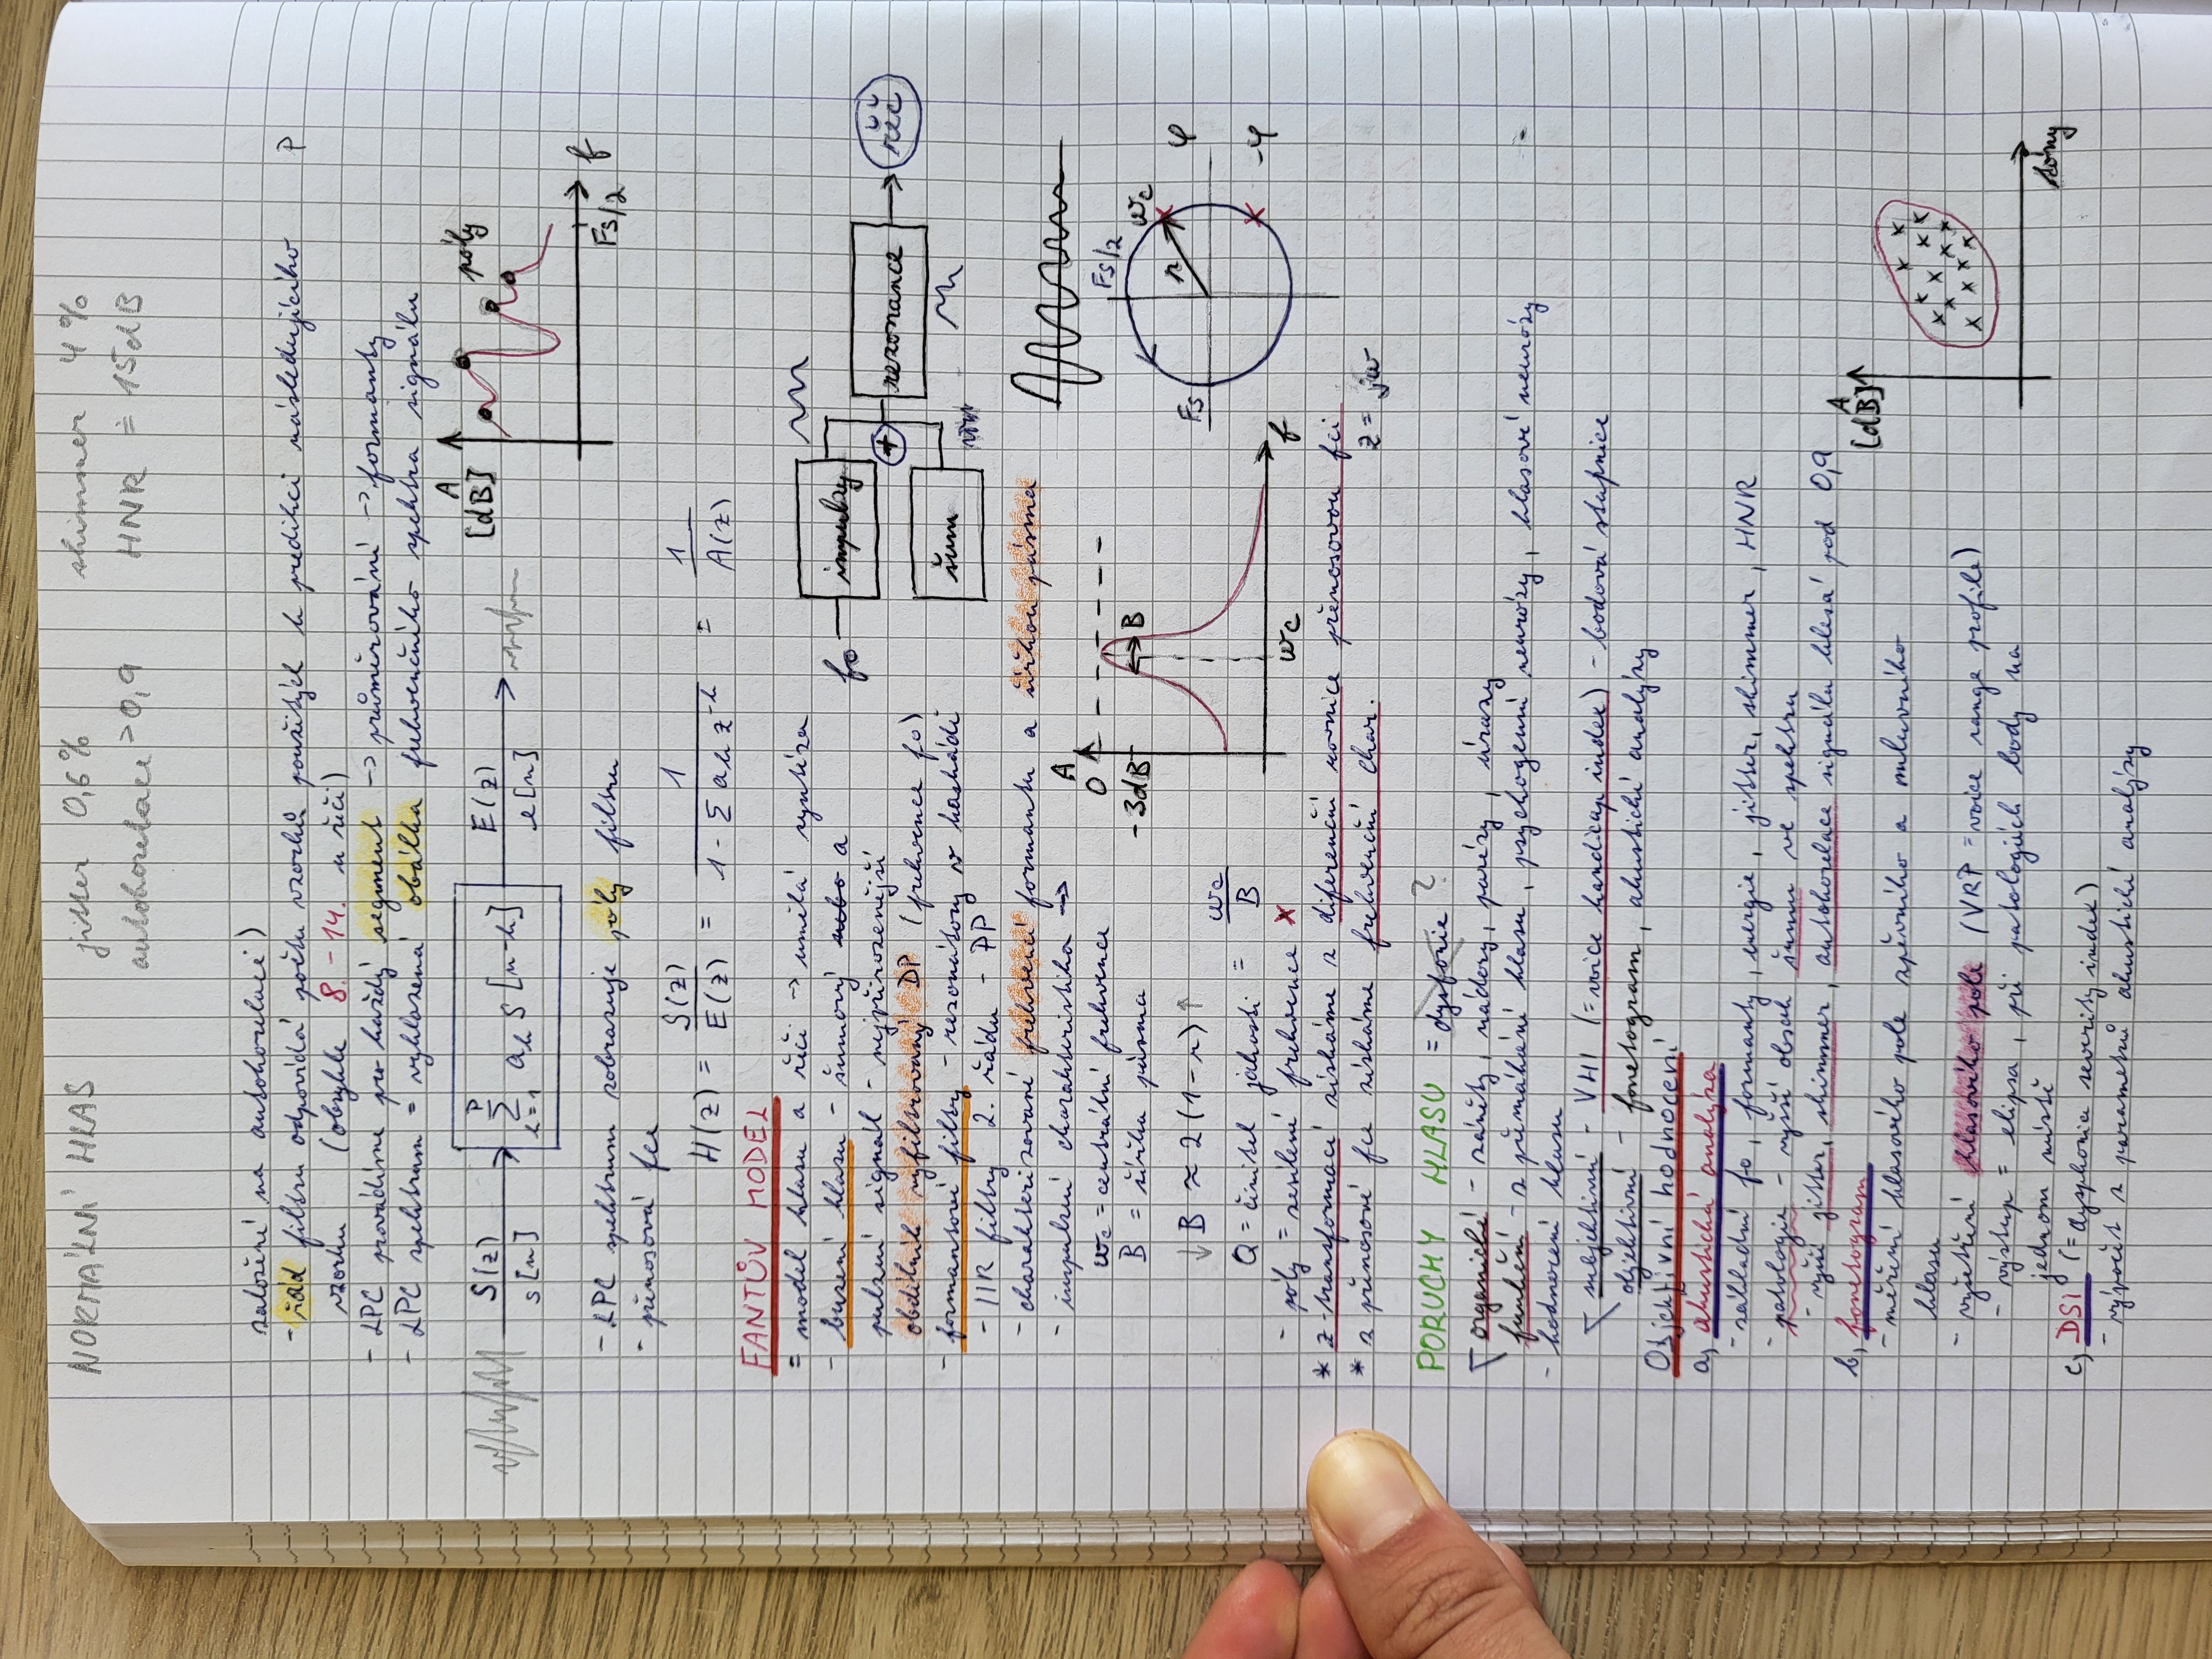 NORMÁLNÍ HLAS jitter 0,6% shimmer 4%
autokorelace >0,9 HNR ≐ 15dB
založení na autokorelaci)
- řád filtru odpovídá počtu vzorků použitých k predikci následujícího P
vzorku (obvykle 8. - 14. u řeči)
- LPC provádíme pro každý segment -> průměrování -> formanty
- LPC spektrum = vyhlazená obálka frekvenčního spektra signálu
S(z)
s[n]
P
∑ aₖ s[n-k]
k=1
E(z)
e[n]
A
[dB]
póly
f
Fs/2
- LPC spektrum zobrazuje póly filtru
- přenosová fce
H(z) = S(z)/E(z) = 1/(1 - ∑ aₖ z⁻ᵏ) = 1/A(z)
FANTŮV MODEL
= model hlasu a řeči -> umělá syntéza
- buzení hlasu - šumový nebo a
pulzní signál - nejpřirozenější
obdélník vyfiltrovaný DP (frekvence f₀)
- formantové filtry - rezonátory v kaskádě
- IIR filtry 2. řádu - PP
- charakterizované frekvencí formantu a šířkou pásma
- impulzní charakteristika ->
f₀ impulzy
+ rezonance řeč
šum
ωc = centrální frekvence
B = šířka pásma
↓ B ≈ 2(1-r) ↑
Q = činitel jakosti = ωc/B
- póly = zesílené frekvence x
A
0
-3dB B
ωc f
Fs/2
ωc
r
Fs φ
-φ
* z-transformací získáme z diferenční rovnice přenosovou fci
* z přenosové fce získáme frekvenční char. z = jω
PORUCHY HLASU = dysfonie ?
organické - záněty, nádory, parézy, úrazy
funkční - z přemáhání hlasu, psychogenní neurózy, hlasové neurózy
- hodnocení hlasu
subjektivní - VHI (= voice handicap index) - bodová stupnice
objektivní - fonetogram, akustické analýzy
Objektivní hodnocení
a, akustická analýza
- základní f₀, formanty, energie, jitter, shimmer, HNR
- patologie - vyšší obsah šumu ve spektru
- vyšší jitter, shimmer, autokorelace signálu klesá pod 0,9
b, fonetogram
- měření hlasového pole zpěvního a mluvního
hlasu
- vyšetření hlasového pole (VRP = voice range profile)
- výstup = elipsa, při patologiích body na
jednom místě
A
[dB]
tóny
c, DSI (= dysphonia severity index)
- výpočet z parametrů akustické analýzy